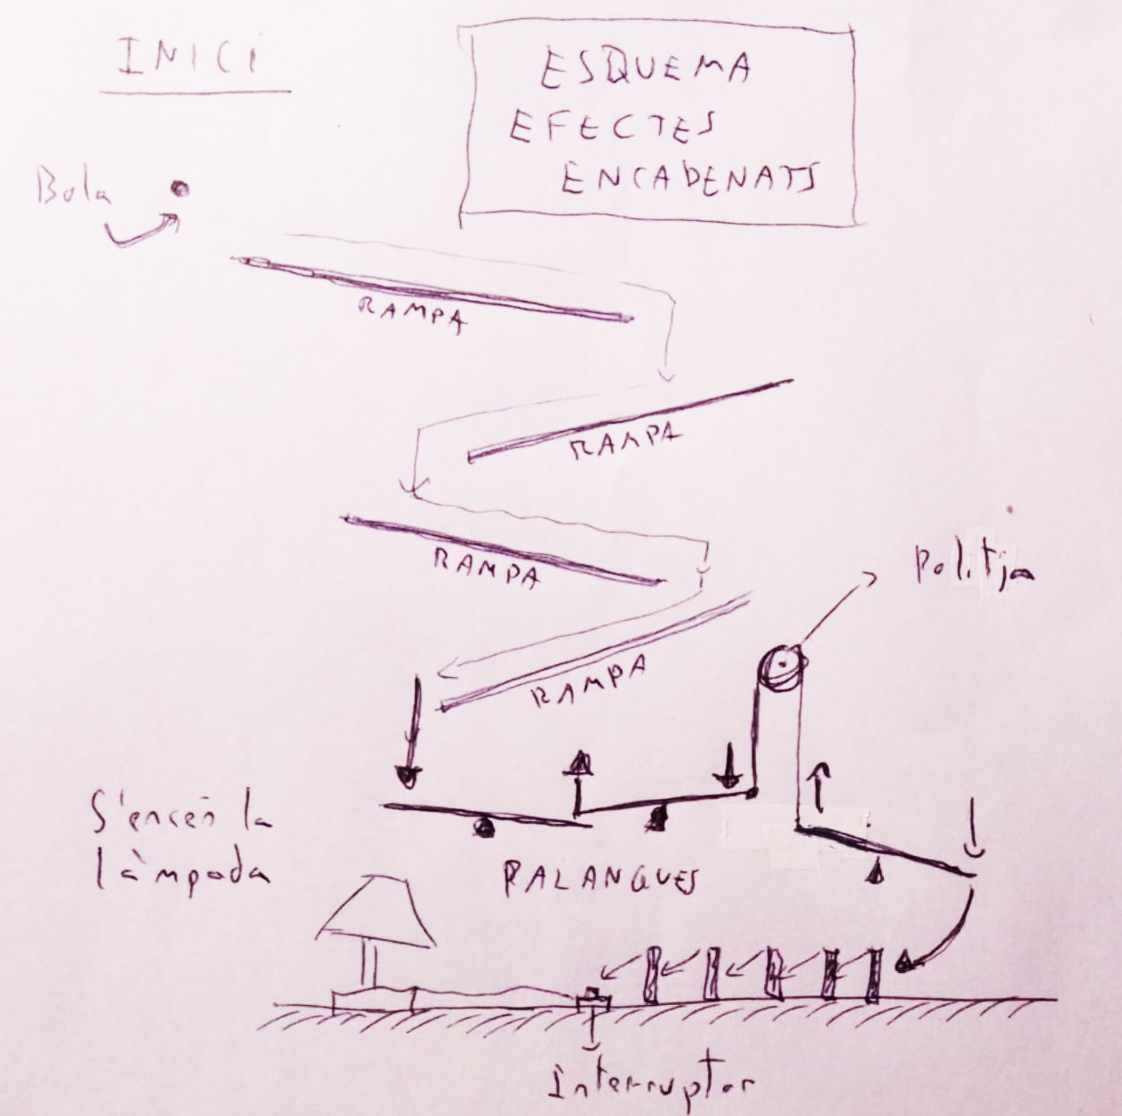 INICI
ESQUEMA
EFECTES
ENCADENATS
Bola
RAMPA
RAMPA
RAMPA
Politja
RAMPA
S'encén la
làmpada
PALANQUES
Interruptor